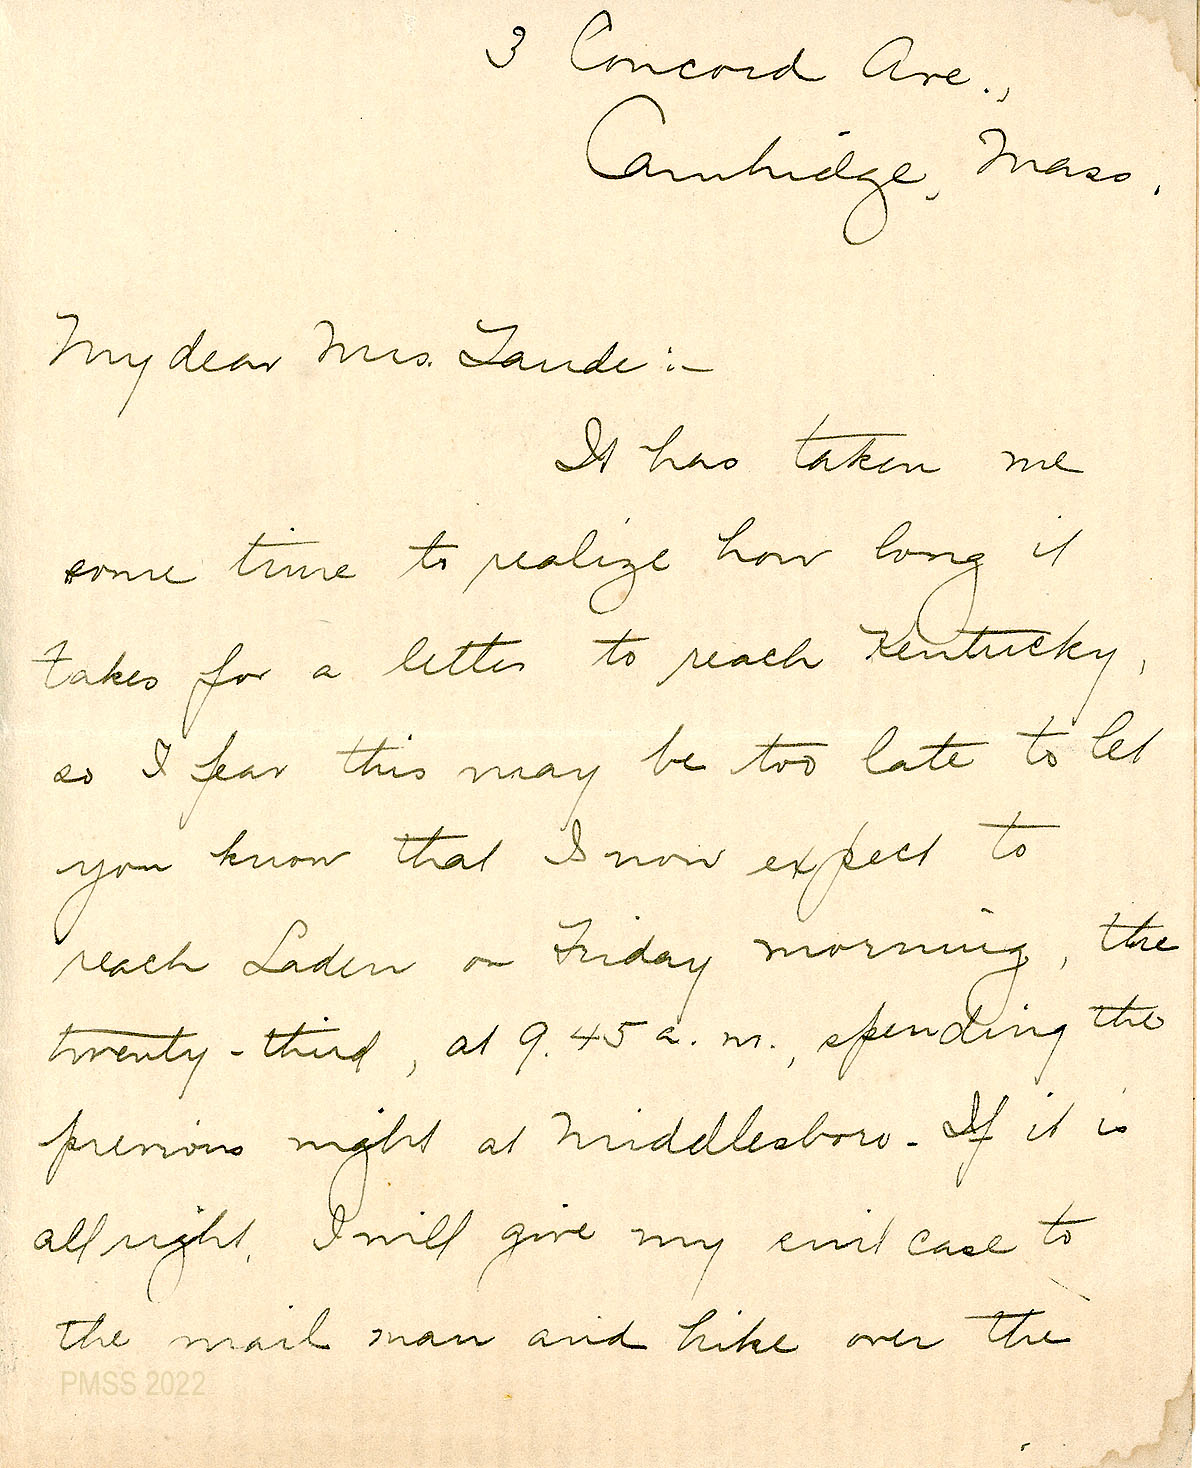 3 Concord Ave.,
Cambridge, Mass.
My dear Mrs. Zande:-
It has taken me
some time to realize how long it
takes for a letter to reach Kentucky,
so I fear this may be too late to let
you know that I now expect to
reach Laden on Friday morning, the
twenty-third, at 9.45 a.m., spending the
previous night at Middlesboro. If it is
all right, I will give my suit case to
the mail man and hike over the
PMSS 2022